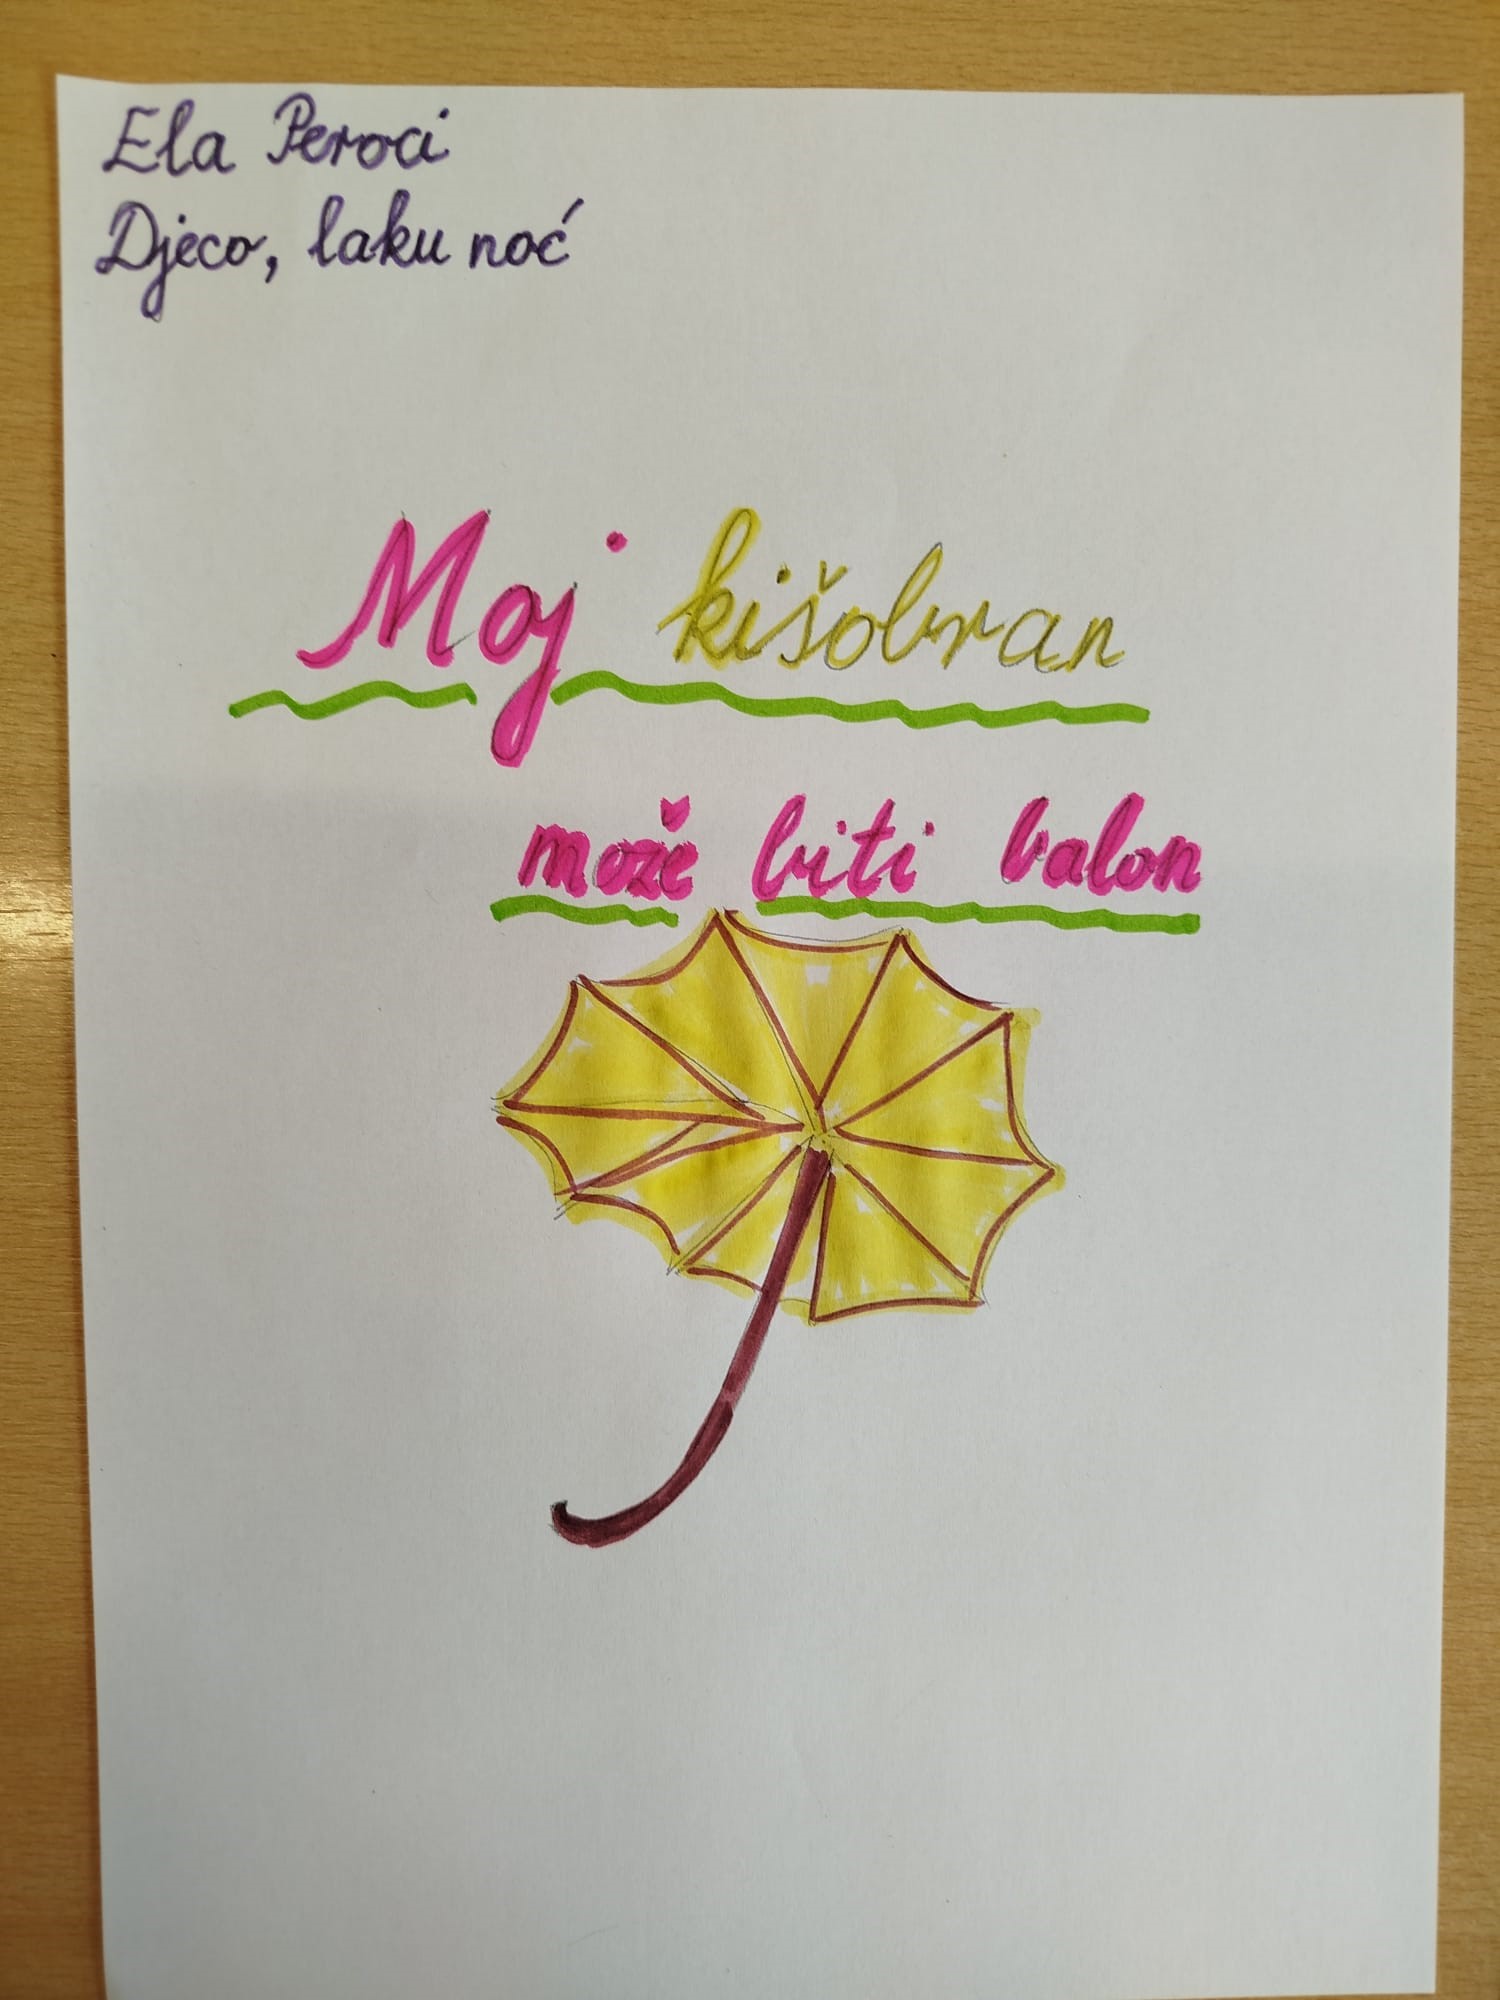 Ela Peroci
Djeco, laku noć
Moj kišobran
može biti balon